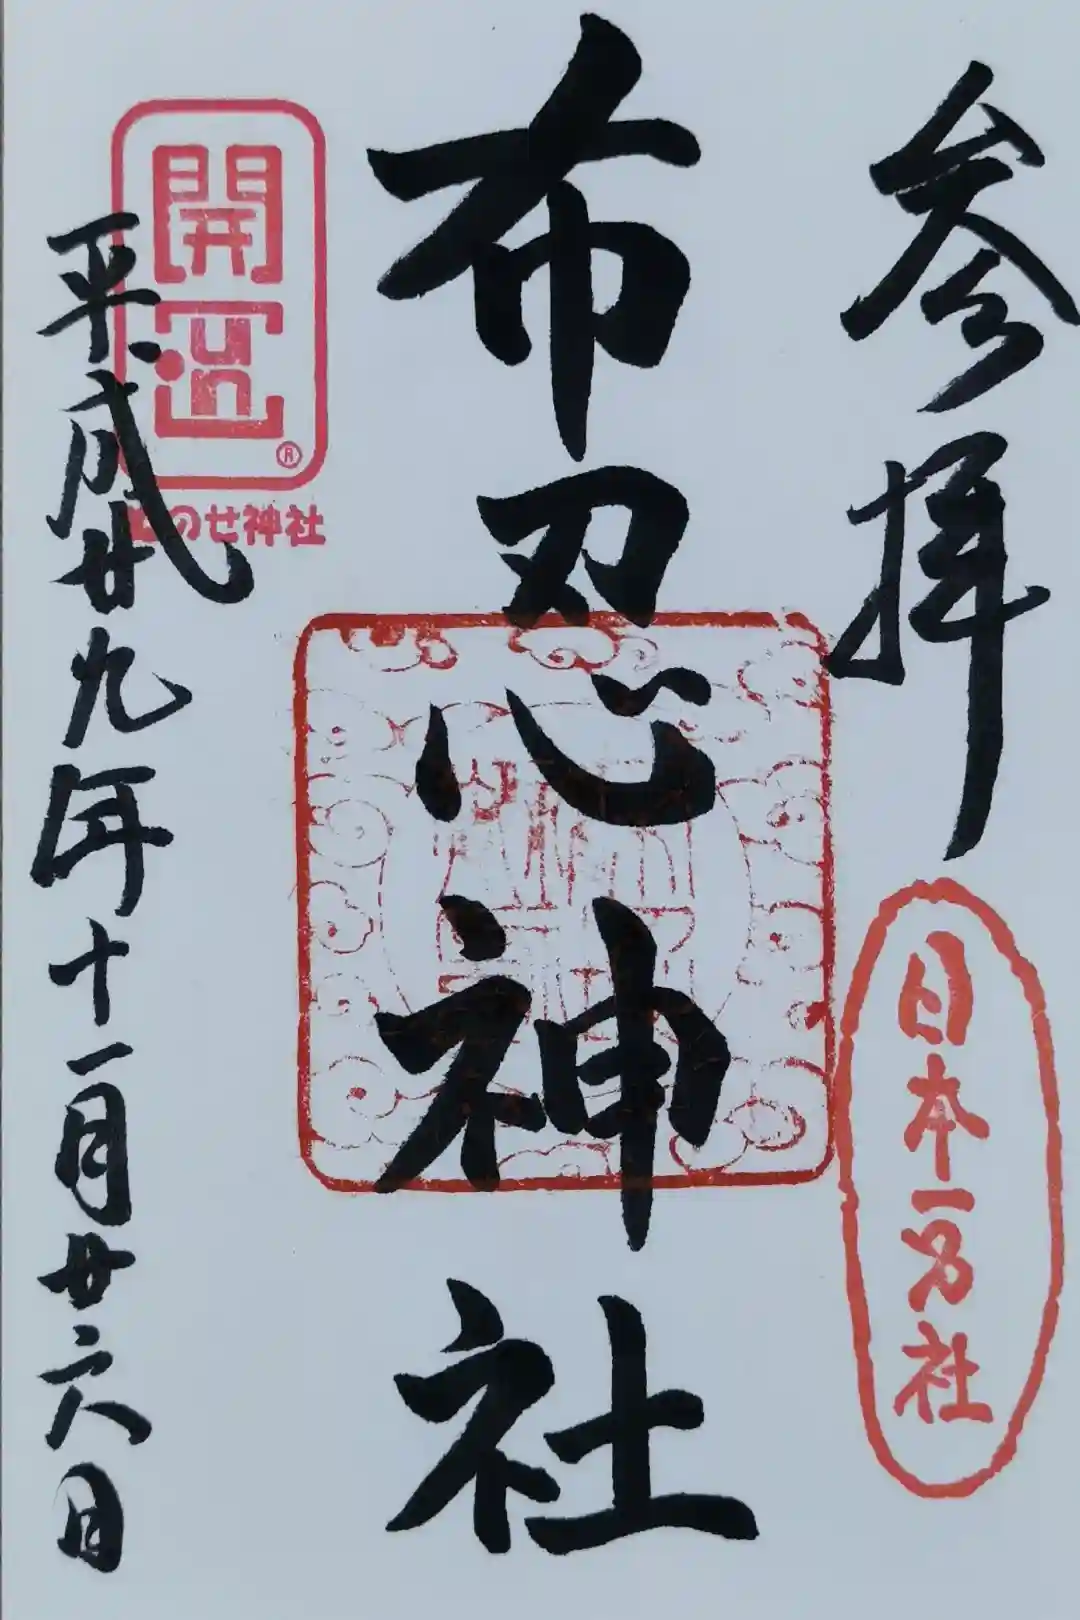 参拝
日本一名社
布忍神社
開運
®
のせ神社
平成廿九年十一月廿六日